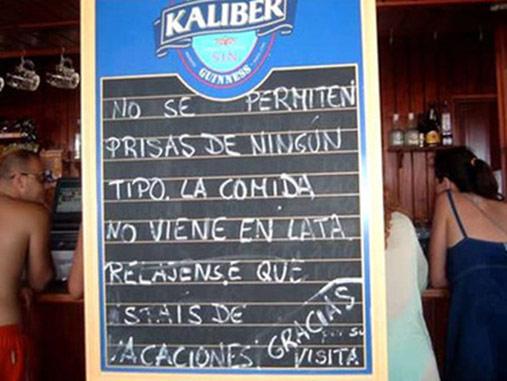 KALIBER
SIN
GUINNESS
NO SE PERMITEN
PRISAS DE NINGÚN
TIPO. LA COMIDA
NO VIENE EN LATA.
RELAJENSE QUE
ESTAIS DE
VACACIONES. GRACIAS
... SU
VISITA